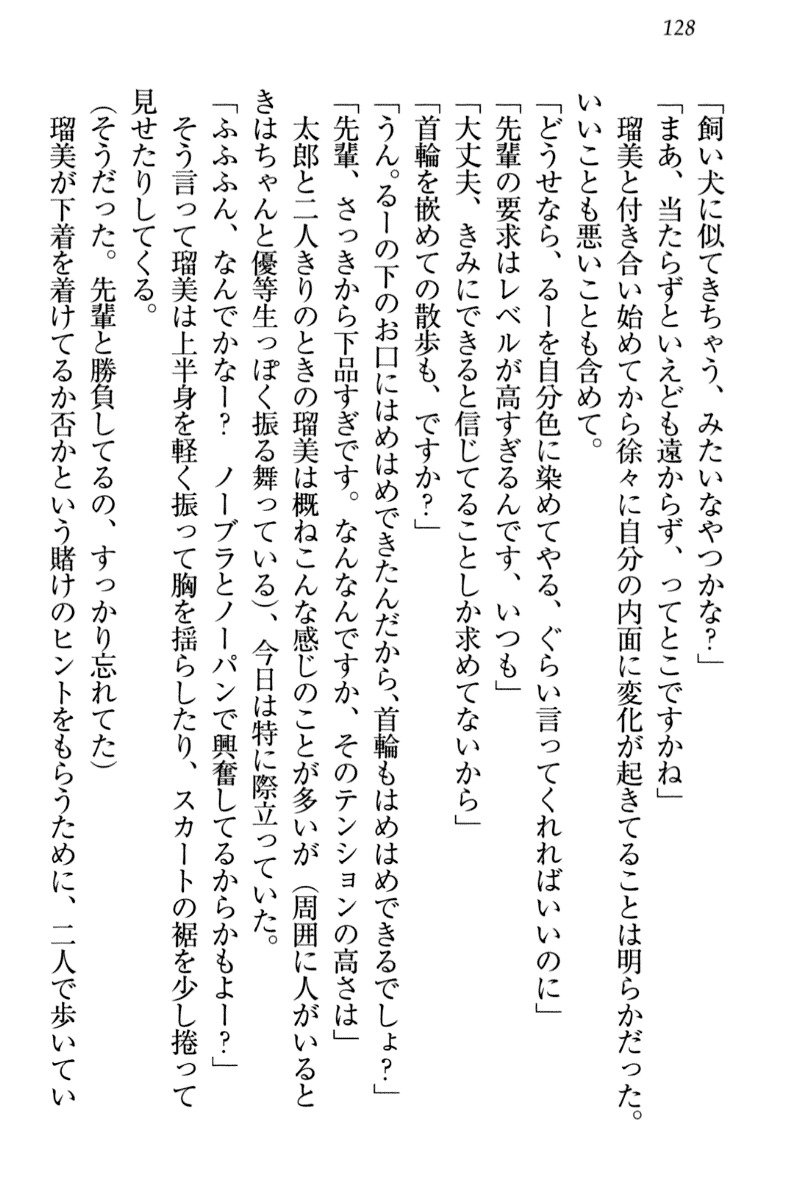 128
「飼い犬に似てきちゃう、みたいなやつかな?」
「まあ、当たらずといえども遠からず、ってとこですかね」
瑠美と付き合い始めてから徐々に自分の内面に変化が起きてることは明らかだった。
いいことも悪いことも含めて。
「どうせなら、るーを自分色に染めてやる、ぐらい言ってくれればいいのに」
「先輩の要求はレベルが高すぎるんです、いつも」
「大丈夫、きみにできると信じてることしか求めてないから」
「首輪を嵌めての散歩も、ですか?」
「うん。るーの下のお口にはめはめできたんだから、首輪もはめはめできるでしょ?」
「先輩、さっきから下品すぎです。なんなんですか、そのテンションの高さは」
太郎と二人きりのときの瑠美は概ねこんな感じのことが多いが(周囲に人がいると
きはちゃんと優等生っぽく振る舞っている)、今日は特に際立っていた。
「ふふふん、なんでかなー? ノーブラとノーパンで興奮してるからかもよー?」
そう言って瑠美は上半身を軽く振って胸を揺らしたり、スカートの裾を少し捲って
見せたりしてくる。
(そうだった。先輩と勝負してるの、すっかり忘れてた)
瑠美が下着を着けてるか否かという賭けのヒントをもらうために、二人で歩いてい